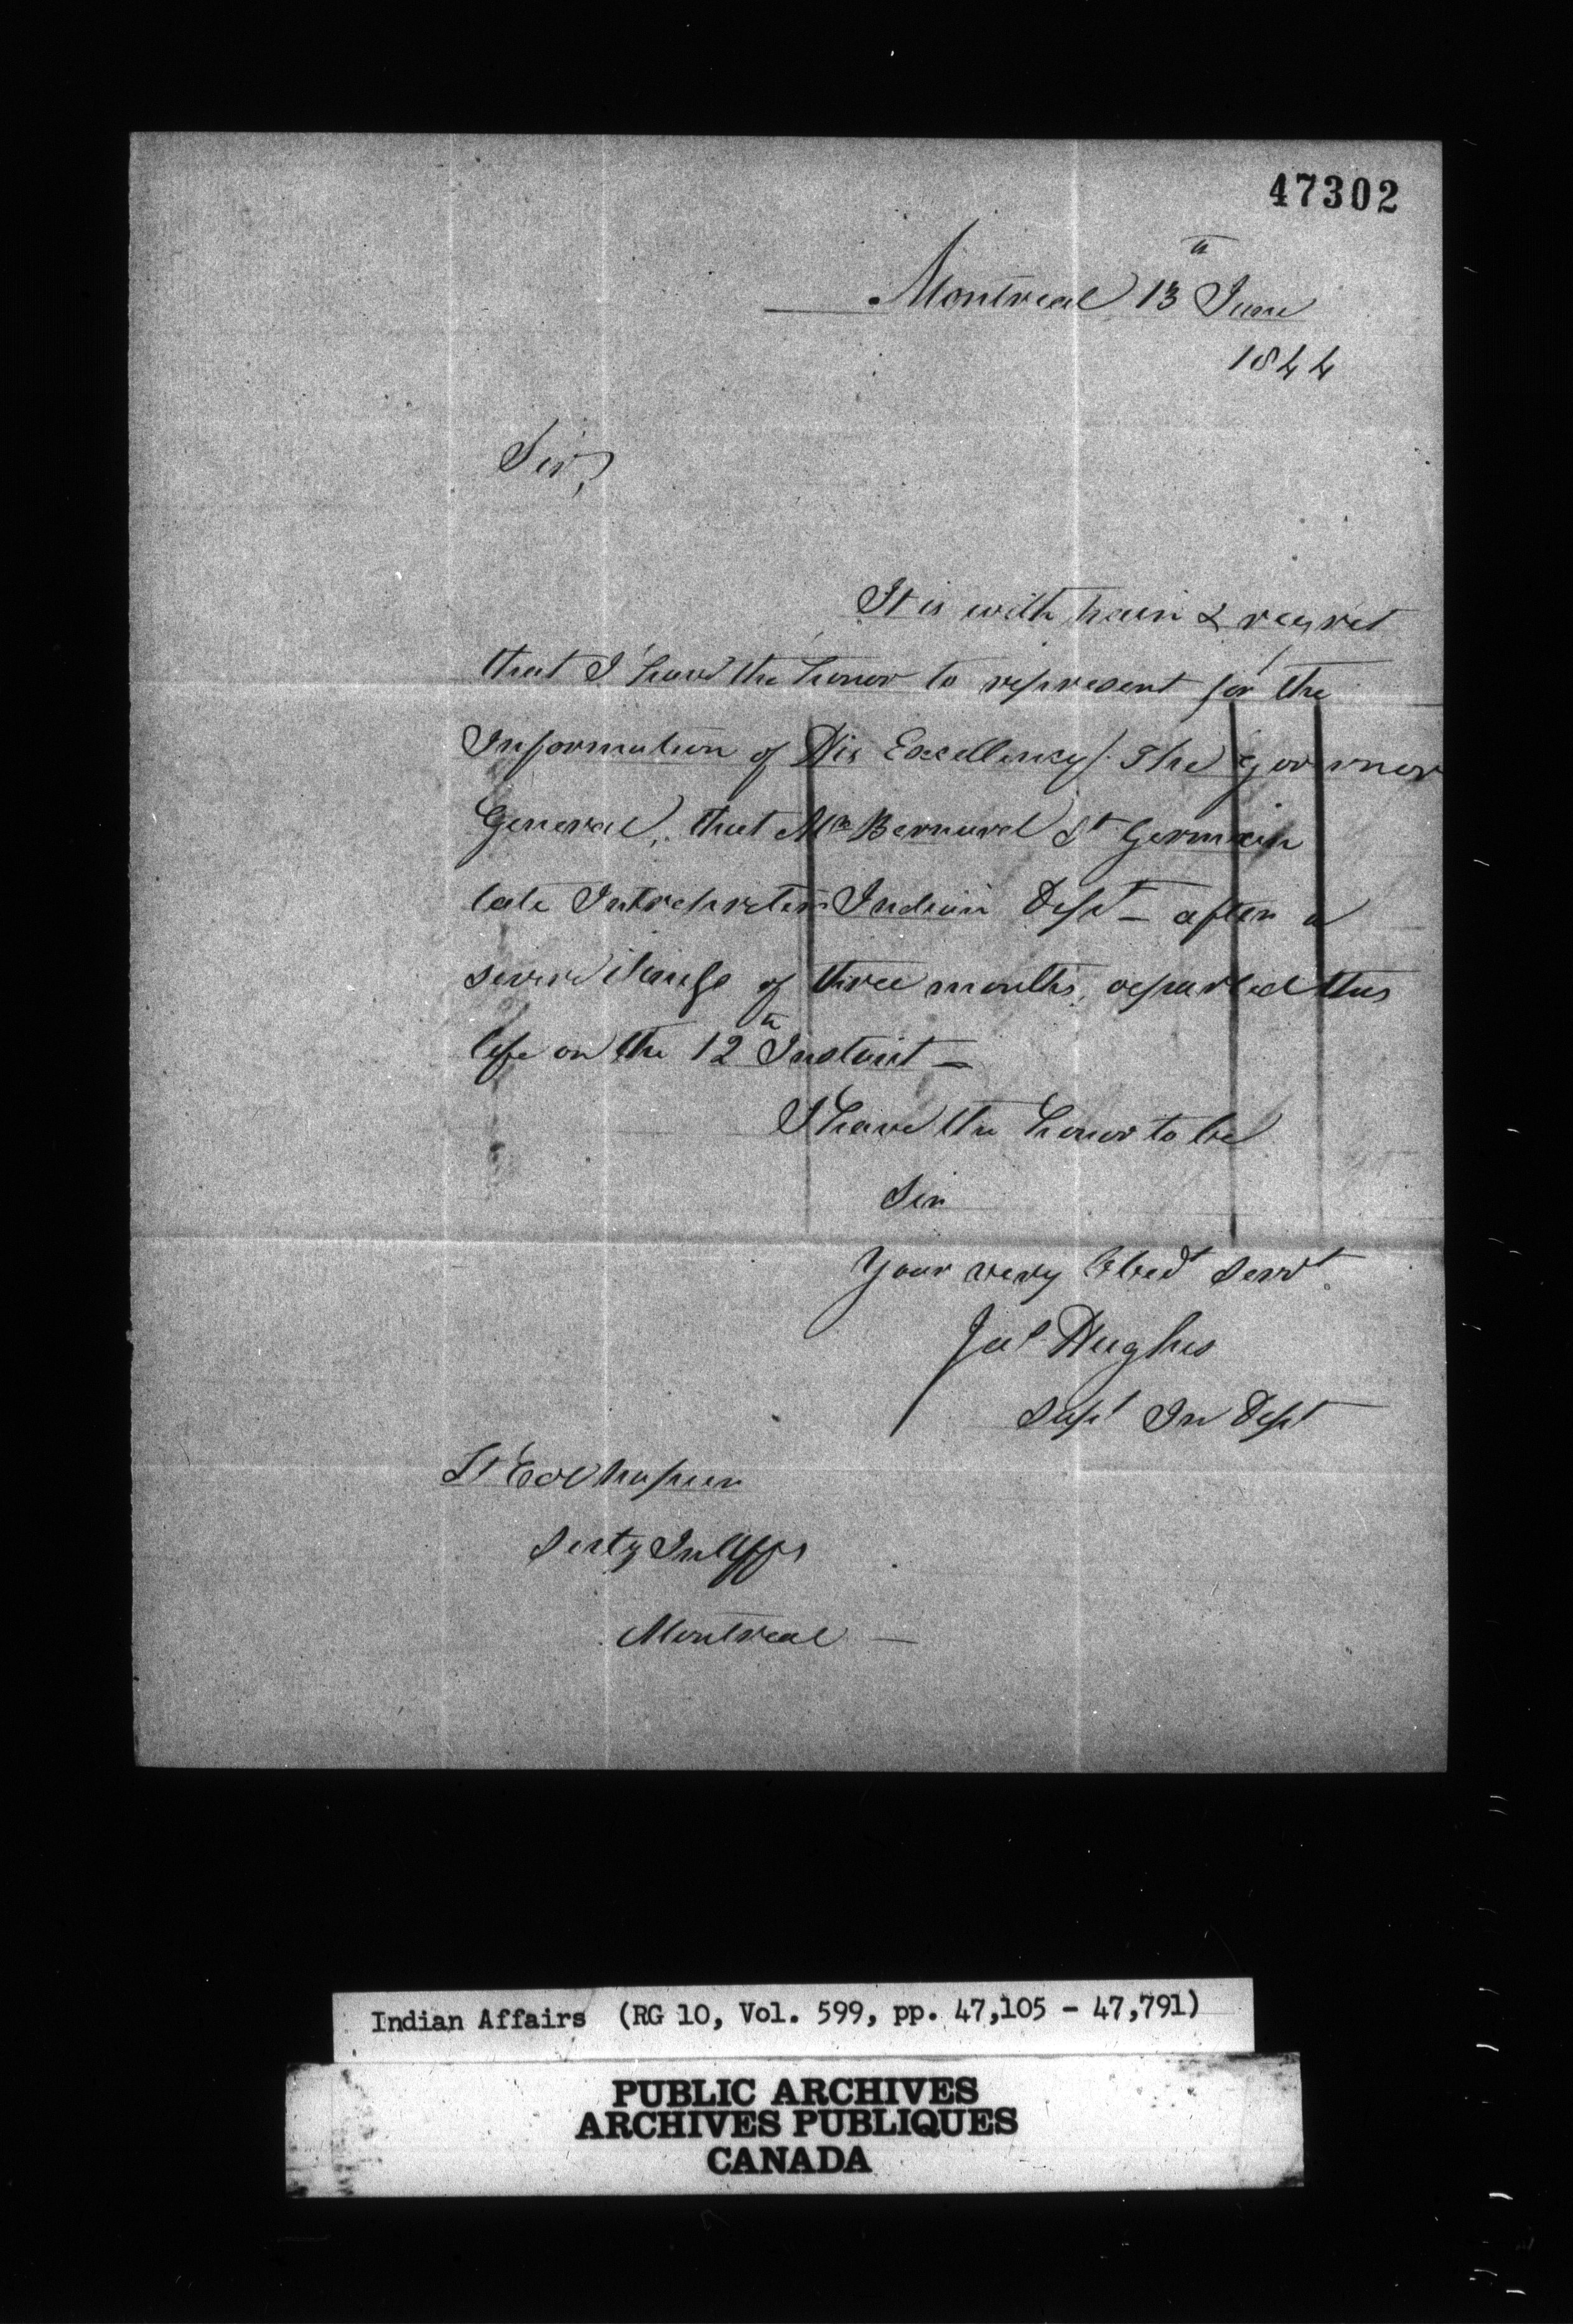 47302
Montreal 13th June
1844
Sir,
It is with pain & regret
that I have the honor to represent for the
Information of His Excellency The Governor
General, that Mr Bernard St Germain
late Interpreter Indian Dept - after a
severe illness of three months, departed this
life on the 12th Instant -
I have the honor to be
Sir
Your very Obedt Servt
Jas Hughes
Supt In Dept
Lt Col Napier
Secty In Affrs
Montreal -
Indian Affairs (RG 10, Vol. 599, pp. 47,105 - 47,791)
PUBLIC ARCHIVES
ARCHIVES PUBLIQUES
CANADA